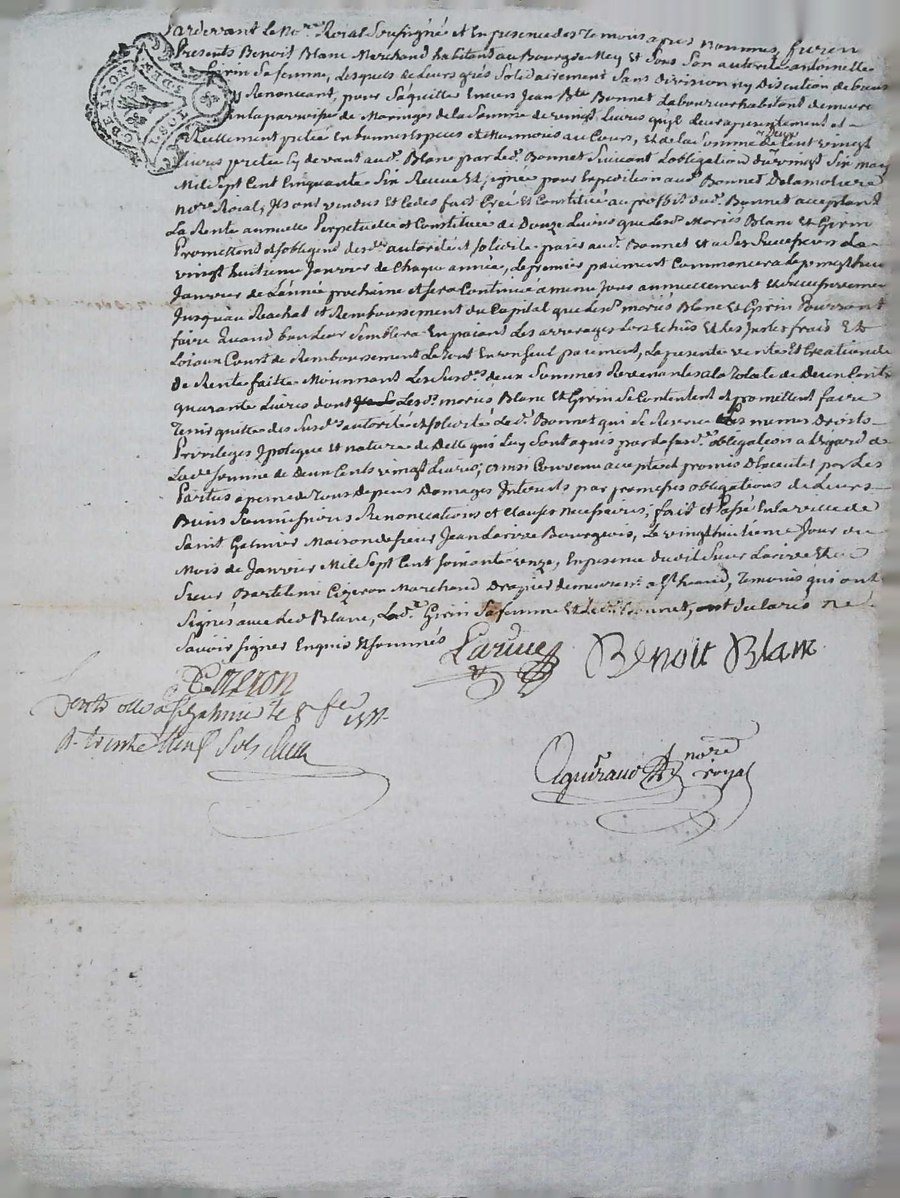 Pardevant le No.re Roial Soussigné et En presence des Temoins apres Nommes, furen
Presents Benoit Blanc Marchand habitant au Bourg de Ney et Sous Son autorité antoinette
Girin Sa femme, lesquels de leurs grés Solidairement Sans Division ny Discution de biens
y Renonceant, pour S'aquitter Envers Jean Bte Bonnet Laboureur habitant demeure
En la parroisse de Maringes de la Somme de vingt Livres qu'il leur a presentement et
Reellement pretée En bonnes Especes et Monnoies au Cours, et de la Somme de Cent vingt
Livres pretée Cy devant aud. Blanc par led. Bonnet Suivant l'obligation du vingt Six may
Mil Sept Cent Cinquante Six Receue Et Signée pour Expedition aud. Bonnet Delamoliere
no.re Roial, Ils ont vendus et Cedes fait Creé Et Constitué au proffit dud. Bonnet acceptant
La Rente annuelle Perpetuelle et Constituée de Douze Livres que lesd. Mariés Blanc Et Girin
Promettent et s'obligent desd. autorité et Solidité paier aud. Bonnet et a Ses Successeurs Le
vingt huitieme Janvier de Chaque année, Le premier paiement Commencera Le vingt huit
Janvier de L'année prochaine et Sera Continué a meme Jour annuellement et Successivement
Jusqu'au Reachat et Remboursement du Capital que lesd. mariés Blanc Et Girin Pourront
faire Quand bon leur Semblera En paiant Les arrerages Lors Echus Et les Justes frais Et
Loiaux Couts de Remboursement Le tout En un Seul paiement, La presente vente Et Creation de
de Rente faitte Moiennant Les Susd.es deux Sommes Revenantes a la Totale de Deux Cents
quarante Livres dont lesd. mariés Blanc Et Girin Se Contentent et promettent faire
Tenir quitte des Susd. autorité et Solidité led. Bonnet qui Se Reserve Les memes Droits
Privileges Ipoteque et nature de Dette qui Luy Sont aquis par la Susd. obligation a L'egard de
Lad. Somme de Deux Cents vingt Livres; ainsi Convenu accepté et promis D'executer par Les
Parties a peine de Tous Depens Domages Interests par promesses obligations de Leurs
Biens Soumissions Renonciations et Clauses Necessaires; fait et Passé En la ville de
Saint Galmier Maison de Sieur Jean Larive Bourgeois, Le vingthuitieme Jour du
Mois de Janvier Mil Sept Cent Soixante onze, En presence dudit Sieur Larive Et de
Sieur Bartelemi Cizeron Marchand Drapier demeurant a St heand, Temoins qui ont
Signés avec led. Blanc, Lad. Girin Sa femme Et led. Bonnet, ont declarés ne
Savoir signer Enquis Et Sommés
Larive
Benoit Blanc
Cizeron
Controllé a St Galmier le 8 fe 1771
R. trente Neuf Sols
nore royal
G DE LYON